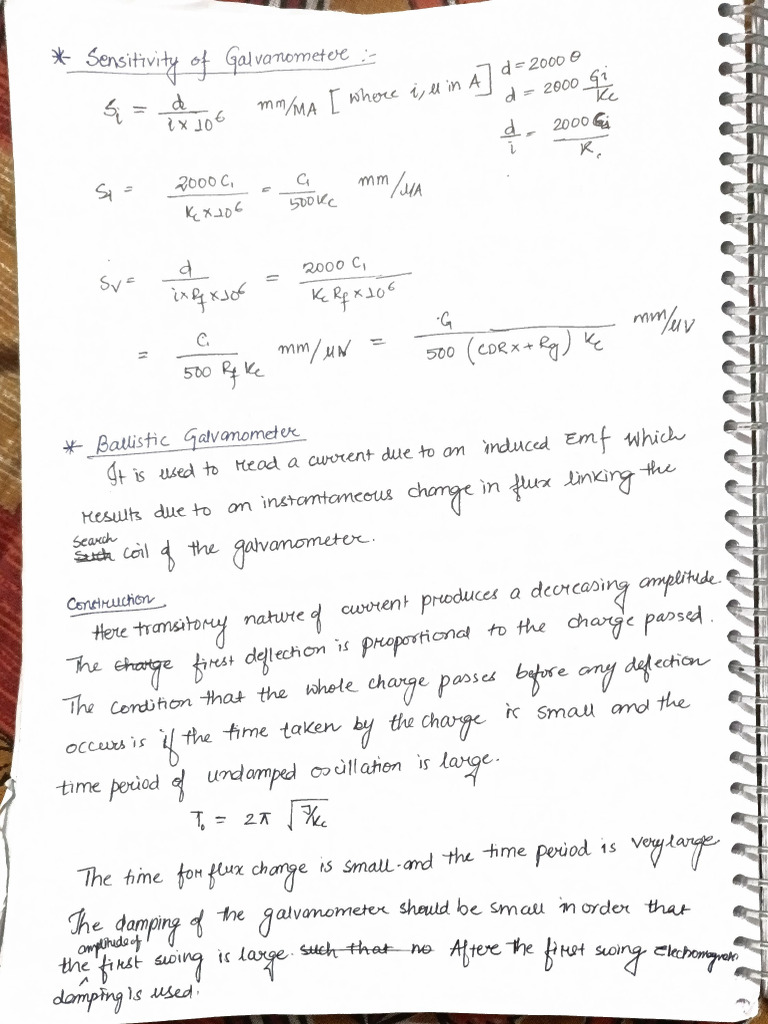 * Sensitivity of Galvanometer :-
Si = d / (i × 10^6) mm/MA [where i, μ in A]
d = 2000 θ
d = 2000 Gi/Kc
d/i = 2000 G/Kc
Si = 2000 G / (Kc × 10^6) = G / (500 Kc) mm/μA
Sv = d / (i × Rf × 10^6) = 2000 G / (Kc Rf × 10^6)
= G / (500 Rf Kc) mm/μV = G / (500 (CDRX + Rg) Kc) mm/μV
* Ballistic Galvanometer
It is used to read a current due to an induced Emf which
results due to an instantaneous change in flux linking the
search coil of the galvanometer.
Construction
Here transitory nature of current produces a decreasing amplitude.
The charge first deflection is proportional to the charge passed.
The condition that the whole charge passes before any deflection
occurs is if the time taken by the charge is small and the
time period of undamped oscillation is large.
T₀ = 2π √(J/Kc)
The time for flux change is small and the time period is very large
The damping of the galvanometer should be small in order that
the amplitude of first swing is large. such that no After the first swing Electromagnetic
damping is used.